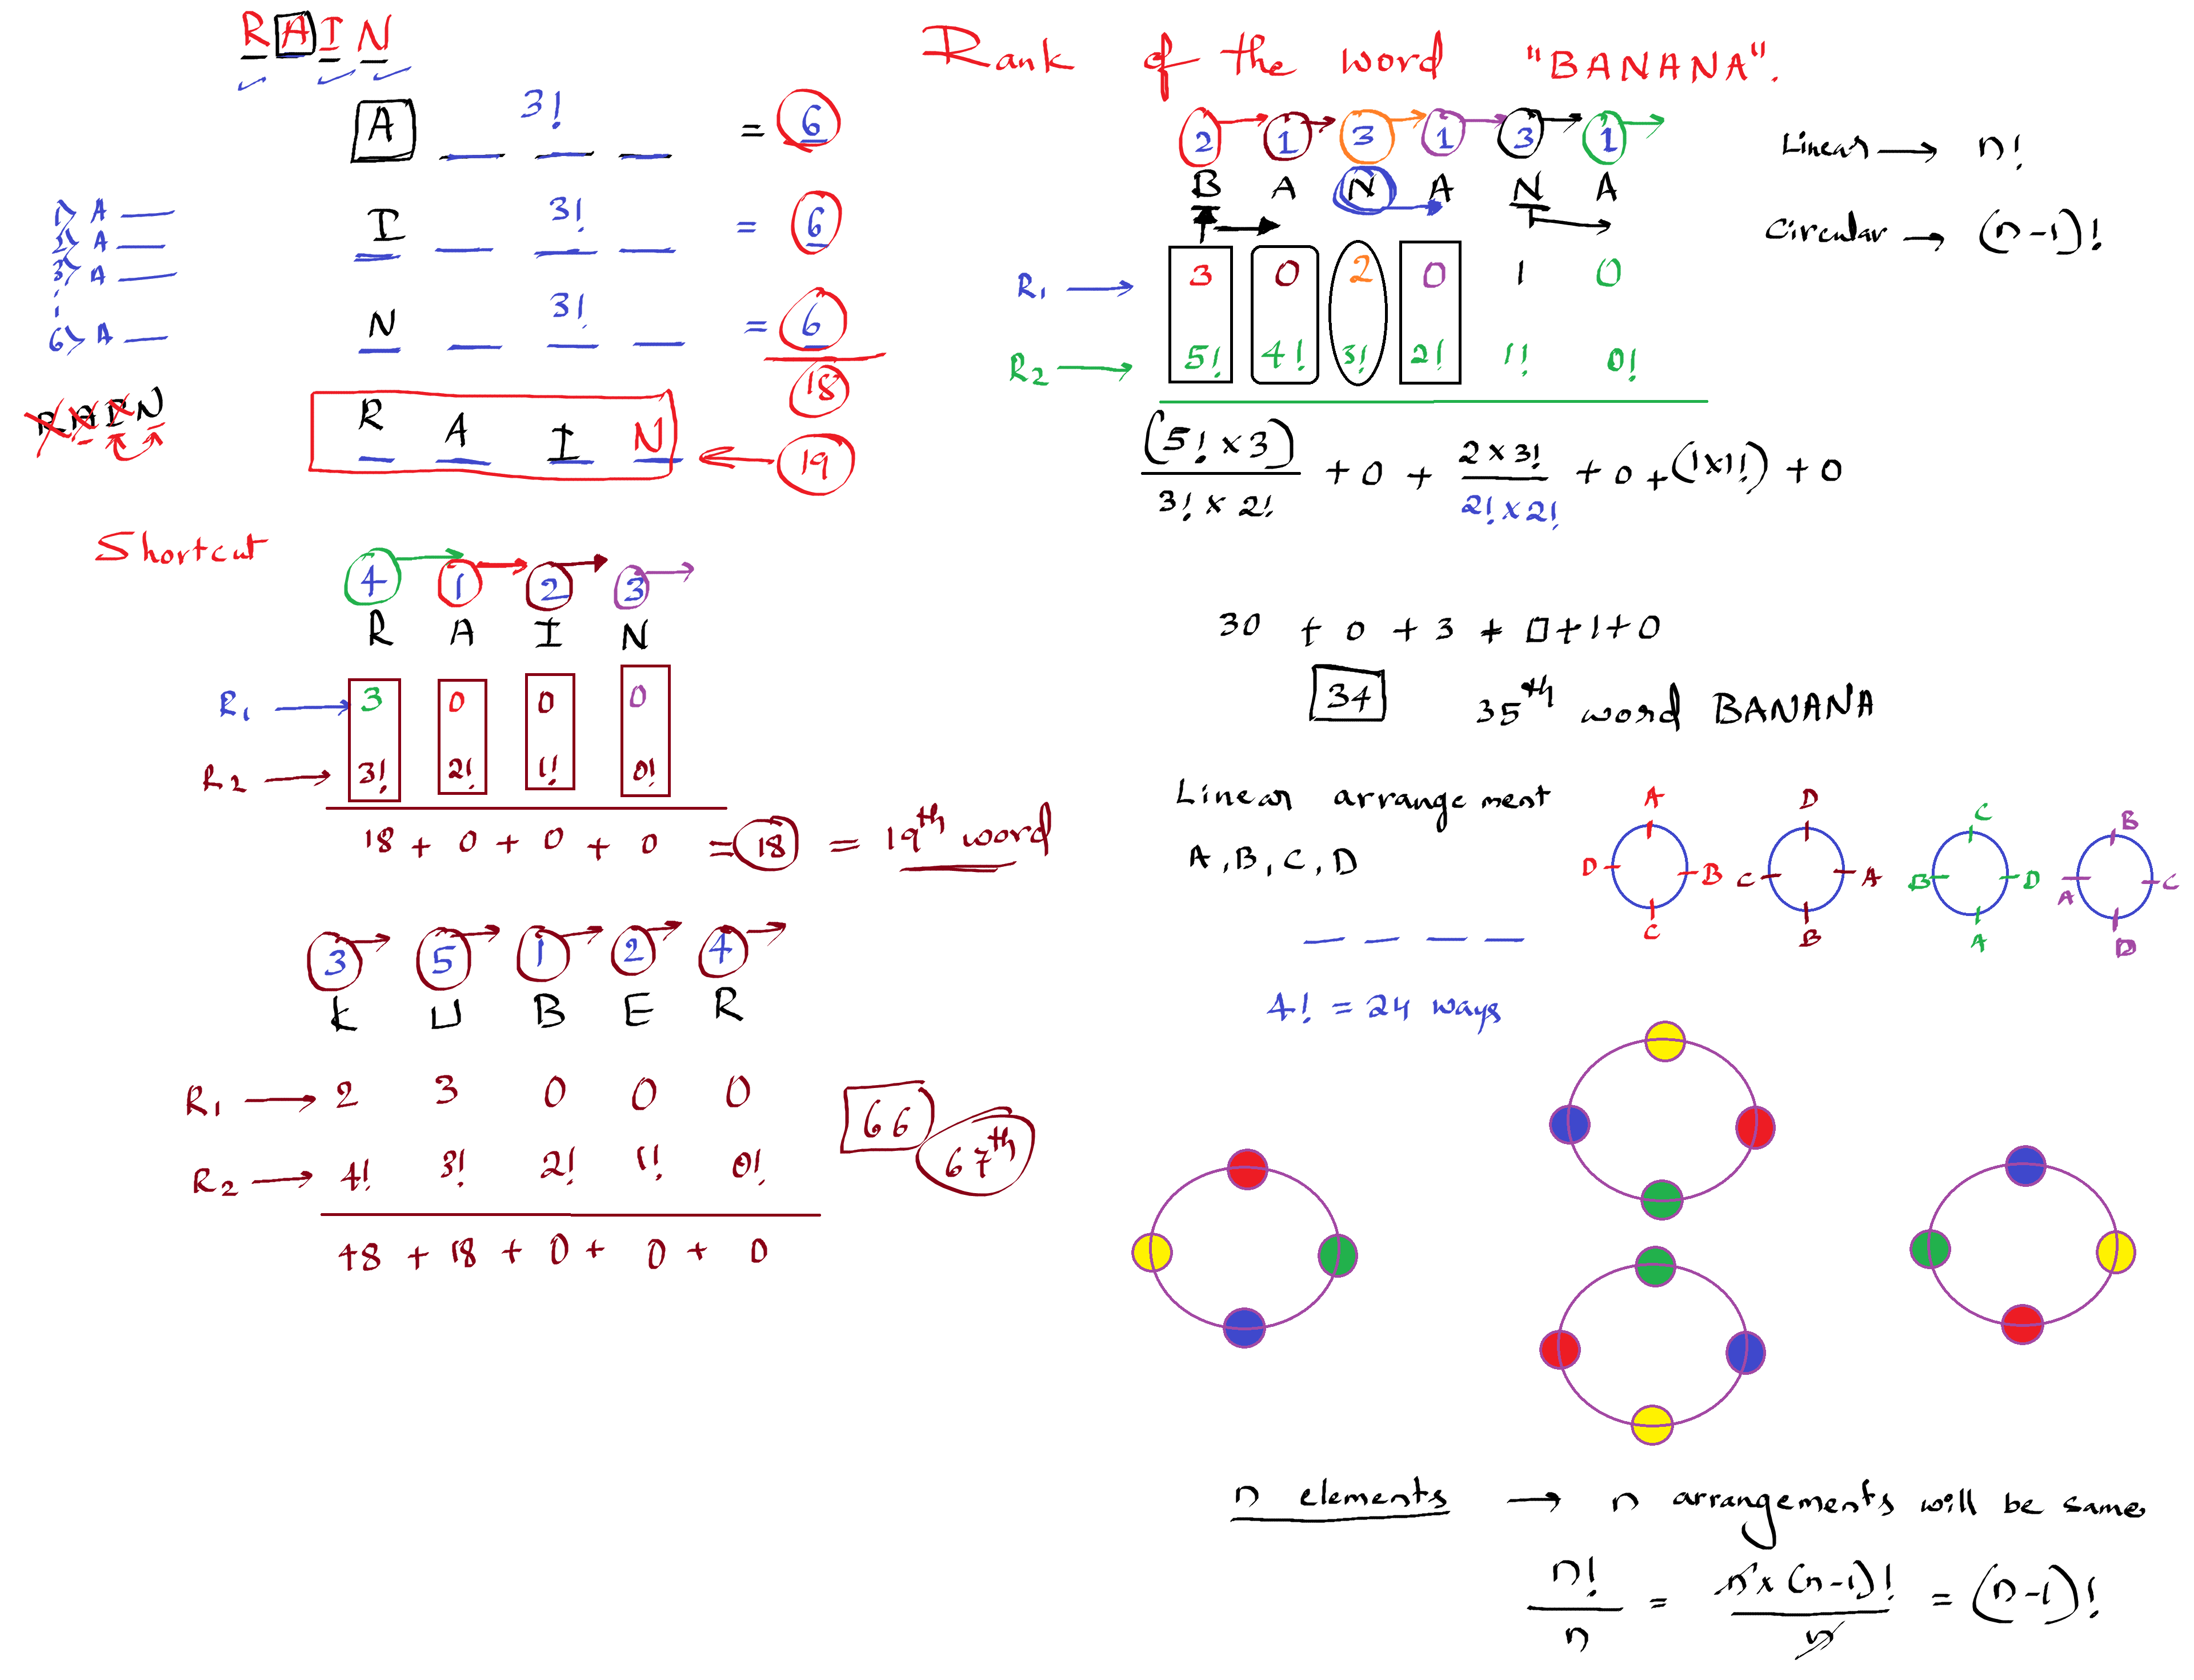 R A I N
A _ _ _ 3! = 6
1> A —
2> A —
3> A —
6> A —
I _ _ _ 3! = 6
N _ _ _ 3! = 6
18
R A I N
R A I N ← 19
Shortcut
4 1 2 3
R A I N
R1 → 3 0 0 0
R2 → 3! 2! 1! 0!
18 + 0 + 0 + 0 = 18 = 19th word
3 5 1 2 4
K U B E R
R1 → 2 3 0 0 0
R2 → 4! 3! 2! 1! 0!
48 + 18 + 0 + 0 + 0
66
67th
Rank of the word "BANANA".
2 1 3 1 3 1
B A N A N A
R1 → 3 0 2 0 1 0
R2 → 5! 4! 3! 2! 1! 0!
(5! x 3) / 3! x 2! + 0 + 2 x 3! / 2! x 2! + 0 + (1x1!) + 0
30 + 0 + 3 + 0 + 1 + 0
34 35th word BANANA
Linear → n!
Circular → (n-1)!
Linear arrangement
A, B, C, D
_ _ _ _
4! = 24 ways
A
D B
C
D
C A
B
C
B D
A
B
A C
D
n elements → n arrangements will be same
n! / n = n x (n-1)! / n = (n-1)!